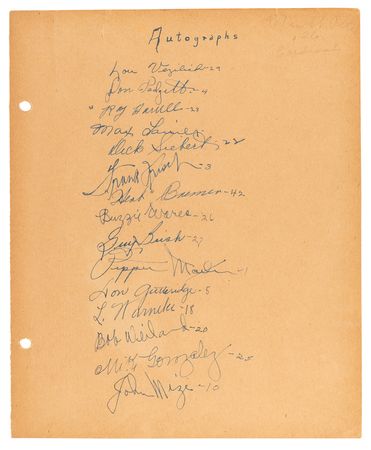 Autographs
Lou Vezilich - 29
Don Padgett - 4
" Roy Harrell - 23
Max Lanier
Dick Siebert - 22
Frank Frisch - 3
"Herb" Bremer - 42
Buzzie Wares - 26
Guy Bush - 27
Pepper Martin - 1
Don Gutteridge - 5
L. Warneke - 18
Bob Weiland - 20
Mike Gonzalez - 25
John Mize - 10